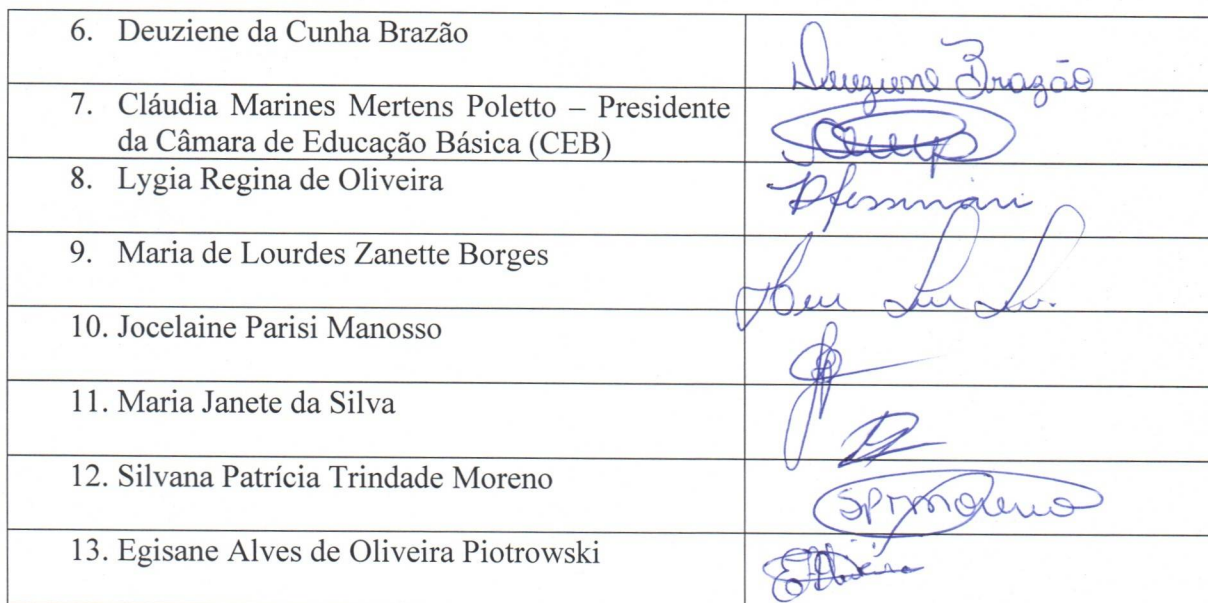 6. Deuziene da Cunha Brazão
Deuziene Brazão
7. Cláudia Marines Mertens Poletto – Presidente
da Câmara de Educação Básica (CEB)
8. Lygia Regina de Oliveira
9. Maria de Lourdes Zanette Borges
10. Jocelaine Parisi Manosso
11. Maria Janete da Silva
12. Silvana Patrícia Trindade Moreno
SPTMoreno
13. Egisane Alves de Oliveira Piotrowski